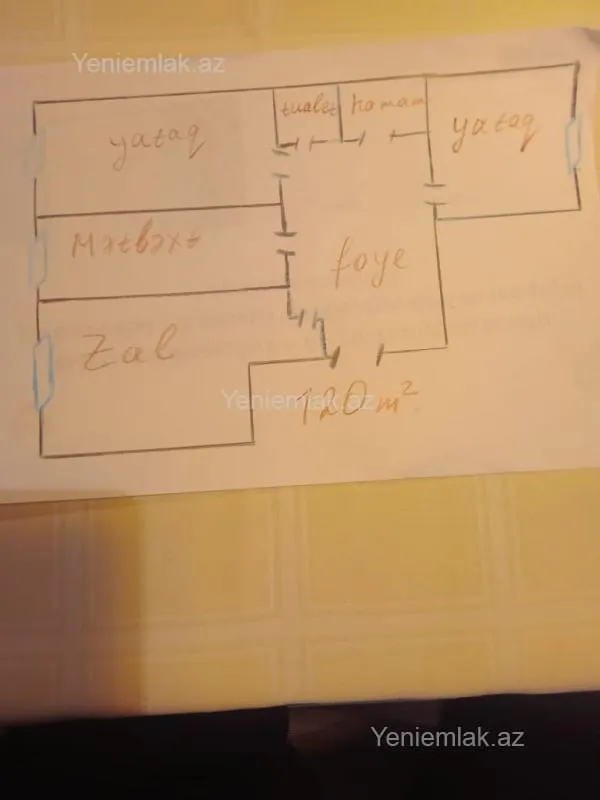 Yeniemlak.az
tualet hamam
yataq yataq
Mətbəxt
foye
Zal
Yeniemlak.az
120 m²
Yeniemlak.az